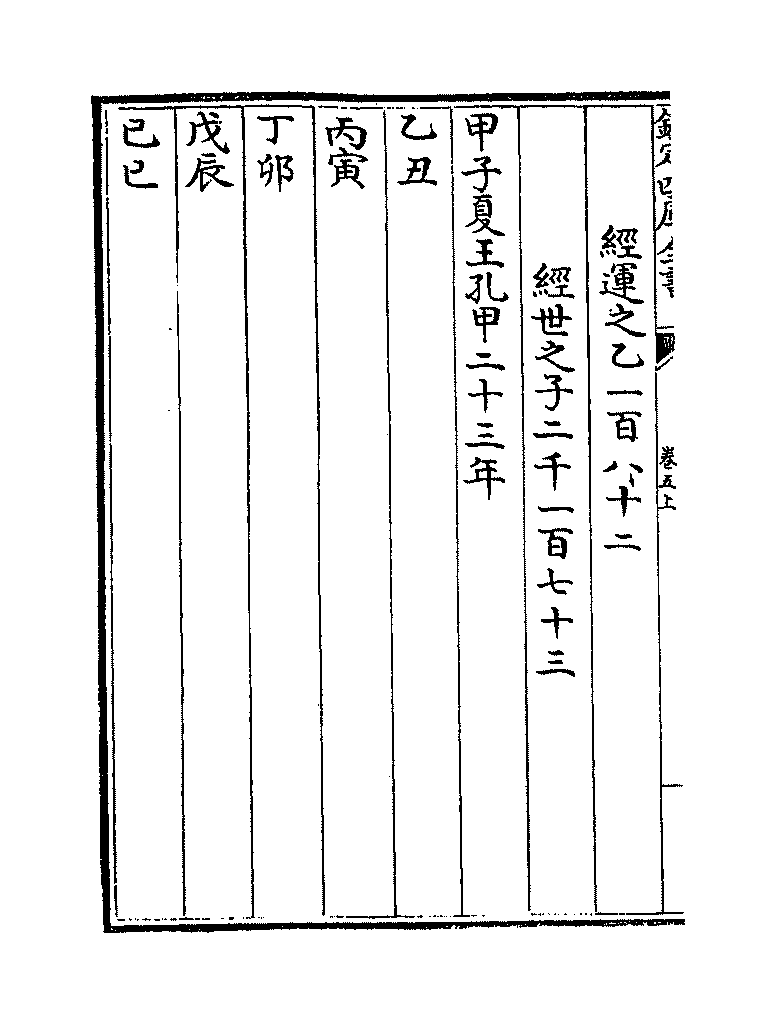 欽定四庫全書
卷五上
經運之乙一百八十二
經世之子二千一百七十三
甲子夏王孔甲二十三年
乙丑
丙寅
丁卯
戊辰
己巳